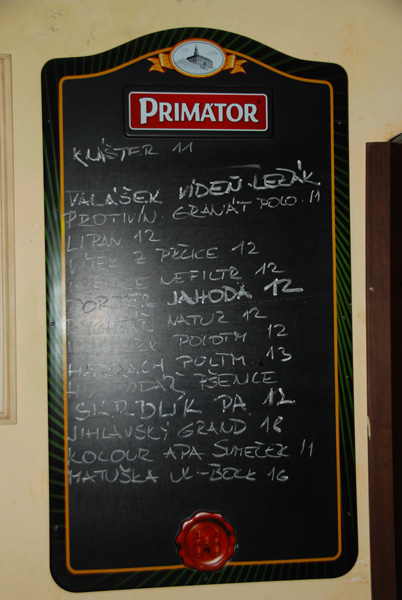 PRIMÁTOR
KLÁŠTER 11
VALÁŠEK VÍDEŇ. LEŽÁK
PROTIVÍN. GRANÁT POLO. 11
LIPAN 12
Z PRČICE 12
NEFILTR 12
PORTER JAHODA 12
NATUR 12
POLOTM 12
POLTM. 13
PŠENICE
SKRDLÍK PA 12
JIHLAVSKÝ GRAND 18
KOCOUR APA SUMEČEK 11
MATUŠKA 16